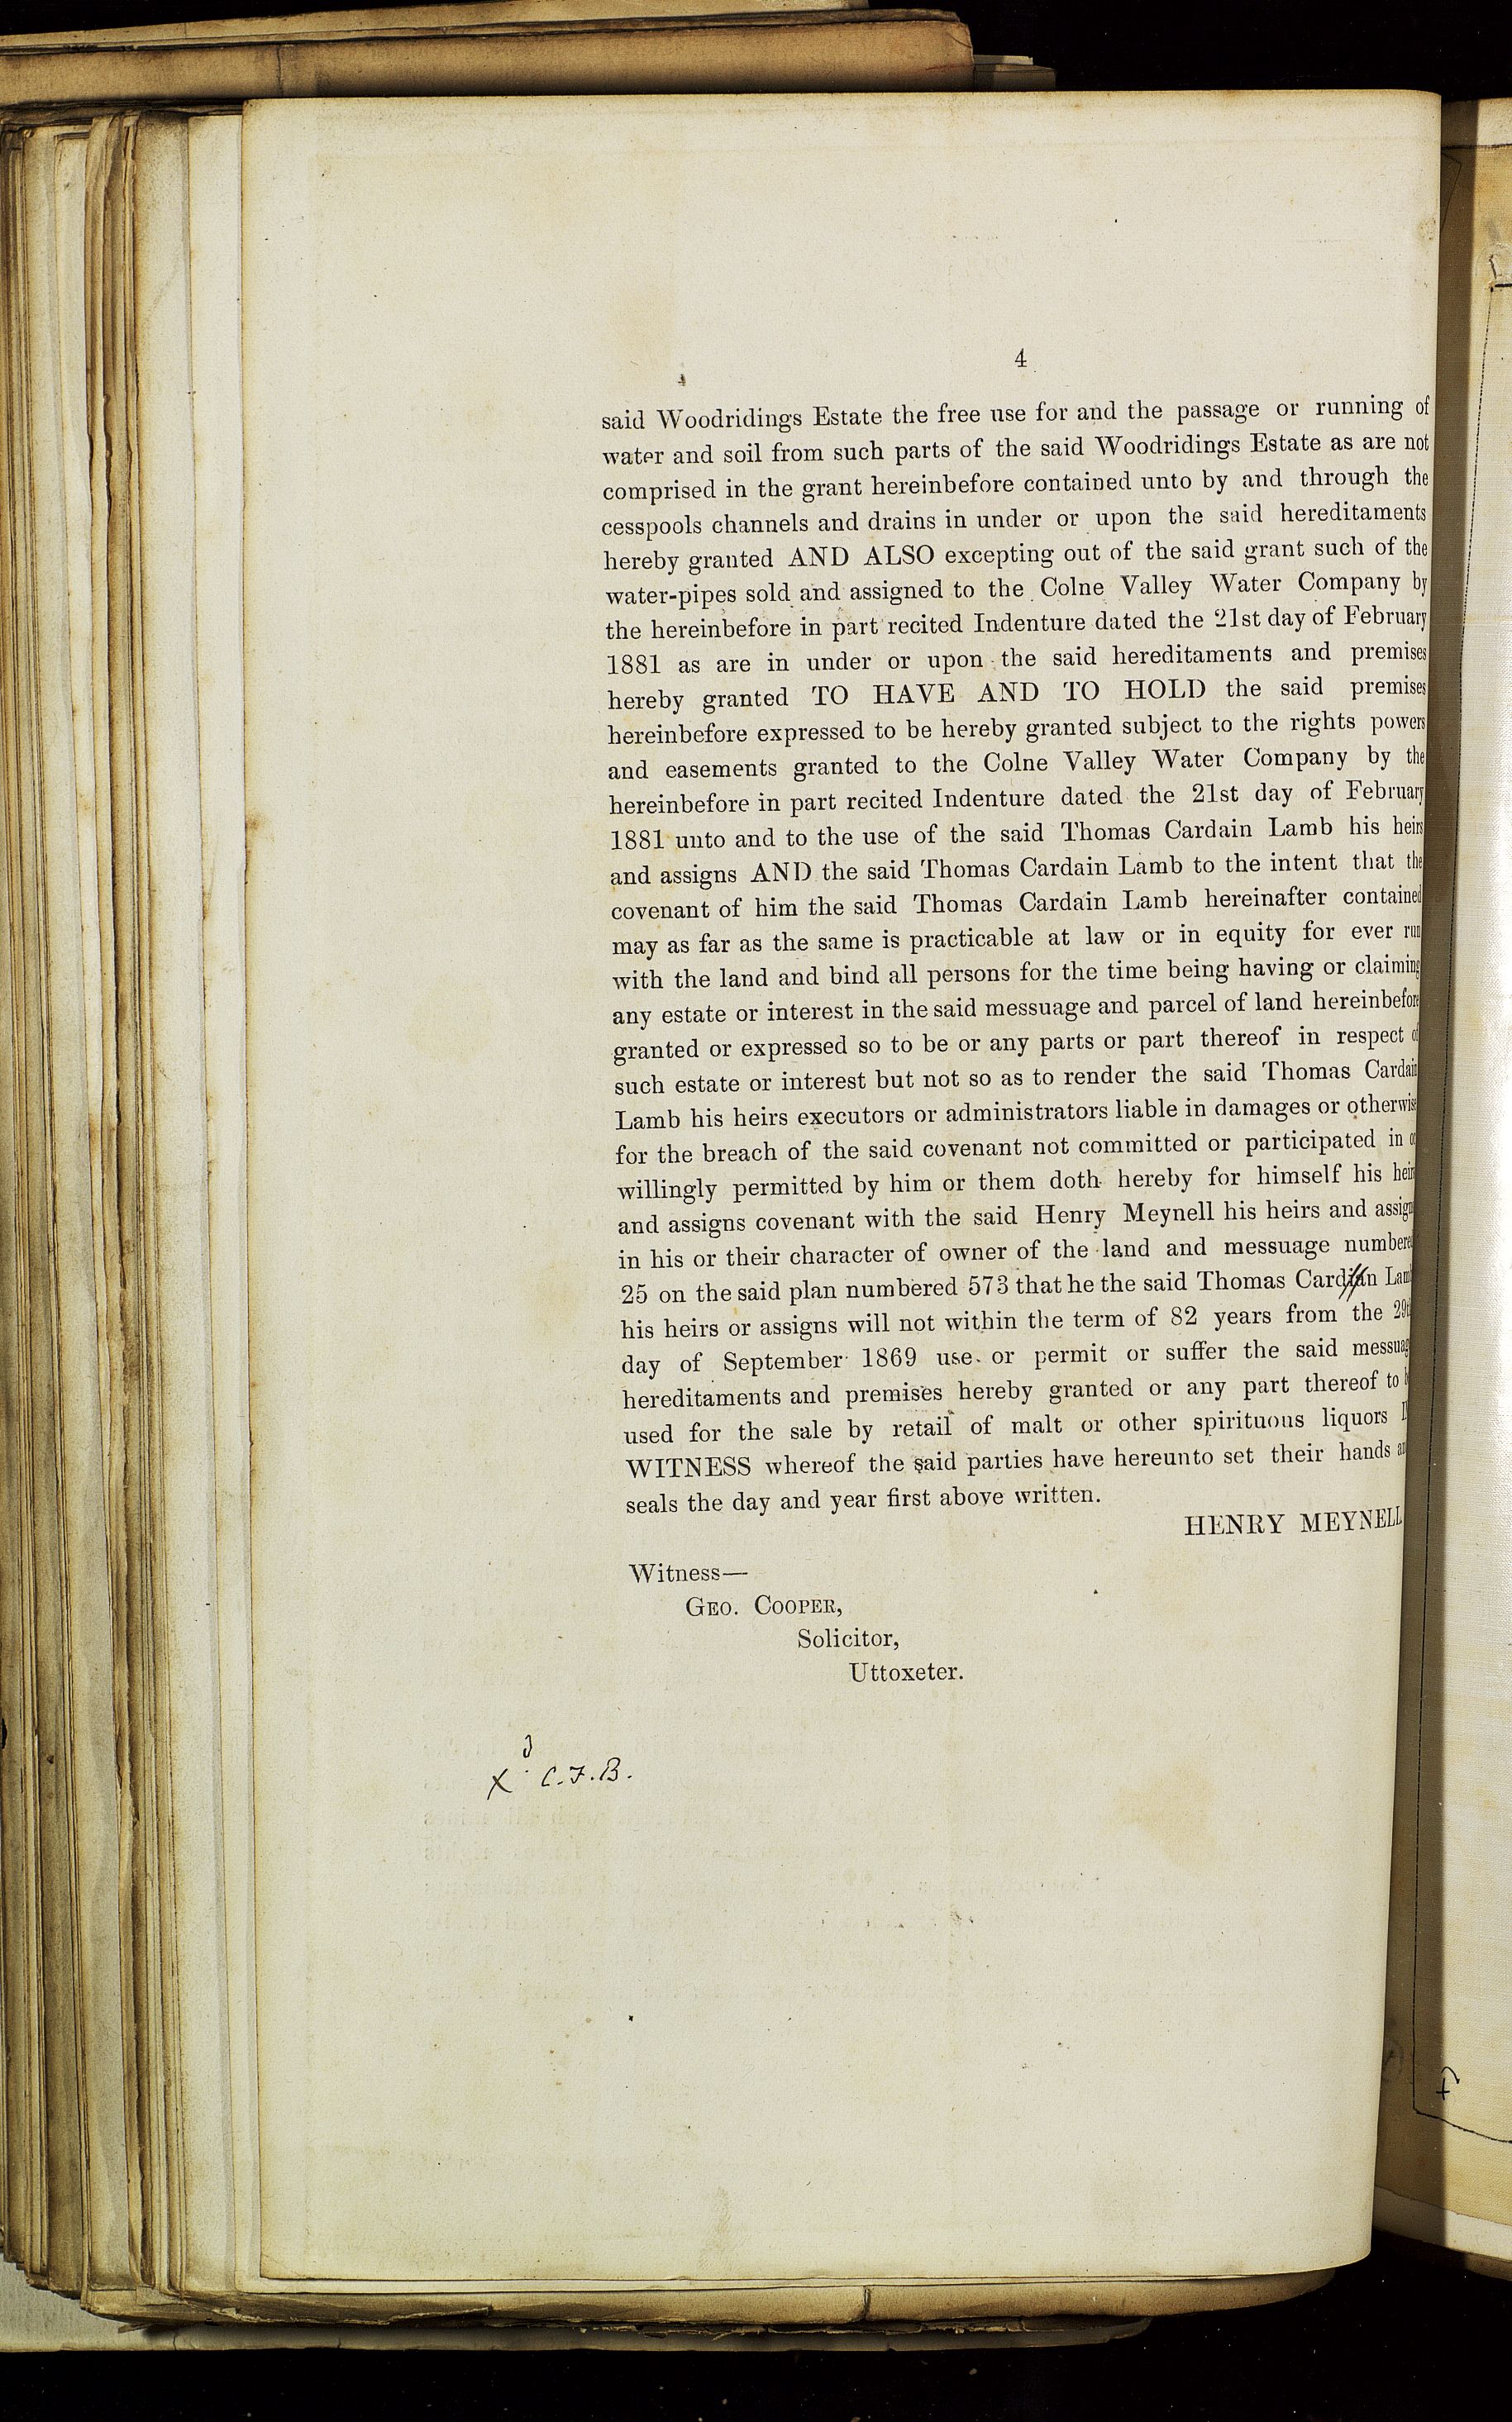 4
said Woodridings Estate the free use for and the passage or running of
water and soil from such parts of the said Woodridings Estate as are not
comprised in the grant hereinbefore contained unto by and through the
cesspools channels and drains in under or upon the said hereditaments
hereby granted AND ALSO excepting out of the said grant such of the
water-pipes sold and assigned to the Colne Valley Water Company by
the hereinbefore in part recited Indenture dated the 21st day of February
1881 as are in under or upon the said hereditaments and premises
hereby granted TO HAVE AND TO HOLD the said premises
hereinbefore expressed to be hereby granted subject to the rights powers
and easements granted to the Colne Valley Water Company by the
hereinbefore in part recited Indenture dated the 21st day of February
1881 unto and to the use of the said Thomas Cardain Lamb his heirs
and assigns AND the said Thomas Cardain Lamb to the intent that the
covenant of him the said Thomas Cardain Lamb hereinafter contained
may as far as the same is practicable at law or in equity for ever run
with the land and bind all persons for the time being having or claiming
any estate or interest in the said messuage and parcel of land hereinbefore
granted or expressed so to be or any parts or part thereof in respect of
such estate or interest but not so as to render the said Thomas Cardain
Lamb his heirs executors or administrators liable in damages or otherwise
for the breach of the said covenant not committed or participated in or
willingly permitted by him or them doth hereby for himself his heirs
and assigns covenant with the said Henry Meynell his heirs and assigns
in his or their character of owner of the land and messuage numbered
25 on the said plan numbered 573 that he the said Thomas Cardian Lamb
his heirs or assigns will not within the term of 82 years from the 29th
day of September 1869 use or permit or suffer the said messuage
hereditaments and premises hereby granted or any part thereof to be
used for the sale by retail of malt or other spirituous liquors IN
WITNESS whereof the said parties have hereunto set their hands and
seals the day and year first above written.
HENRY MEYNELL
Witness—
GEO. COOPER,
Solicitor,
Uttoxeter.
X d C.F.B.